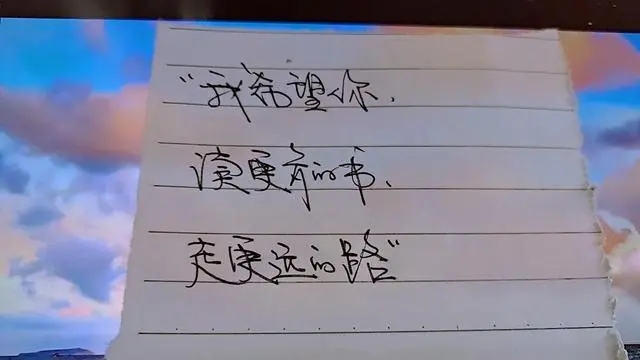 “我希望你,
读更多的书,
走更远的路”